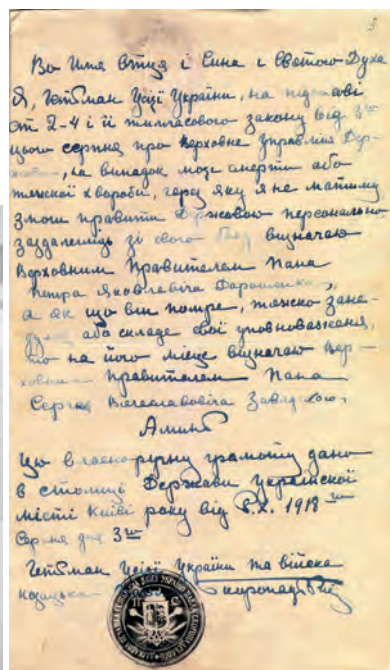 Во Имя Отця і Сина і Святого Духа
Я, Гетьман Усієї України, на підставі
ст 2-4 і ій тимчасового закону від 3го
цього серпня про Верховне Управління Дер-
на випадок моєї смерти або
тяжкої хвороби, через яку я не матиму
змоги правити Державою персонально
заздалегідь зі свого боку визначаю
Верховним Правителем Пана
Петра Яковлевіча Дорошенка,
а як що він помре, тяжско зане-
або складе свої уповноваження,
то на його місце визначаю Вер-
ховним Правителем Пана
Сергея Вячеславовіча Завадсково,
Аминь
Цю власноручну грамоту дано
в столиці Держави Української
місті Київі року від Р.Х. 1918го
Серпня дня 3го
Гетьман Усієї України та війська
козацького Скоропадський